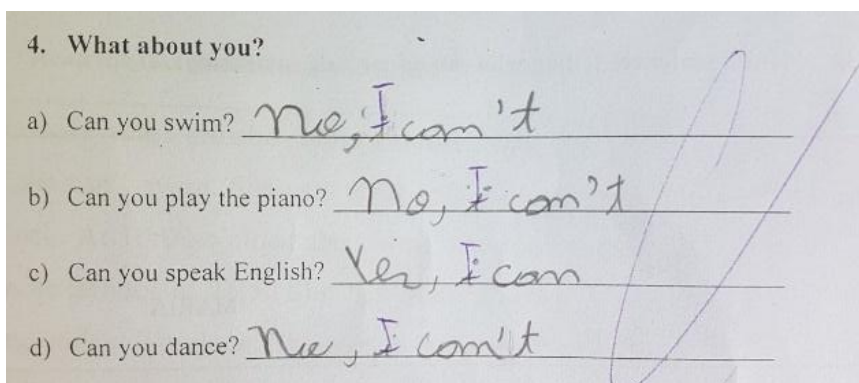 4. What about you?
a) Can you swim? No, I can't
b) Can you play the piano? No, I can't
c) Can you speak English? Yes, I can
d) Can you dance? No, I can't